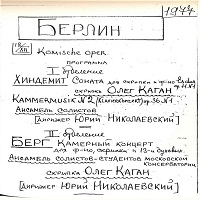 1977
БЕРЛИН
Komische oper.
ПРОГРАММА
I отделение
ХИНДЕМИТ СОНАТА для скрипки и ф-но
скрипка ОЛЕГ КАГАН
KAMMERMUSIK №2 (KLAVIERKONZERT) op.36 №1
АНСАМБЛЬ СОЛИСТОВ
[ДИРИЖЕР ЮРИЙ НИКОЛАЕВСКИЙ]
II отделение
БЕРГ КАМЕРНЫЙ КОНЦЕРТ
для ф-но, скрипки и 13-и духовых
АНСАМБЛЬ СОЛИСТОВ-СТУДЕНТОВ МОСКОВСКОЙ
КОНСЕРВАТОРИИ
СКРИПКА ОЛЕГ КАГАН
[ДИРИЖЕР ЮРИЙ НИКОЛАЕВСКИЙ]